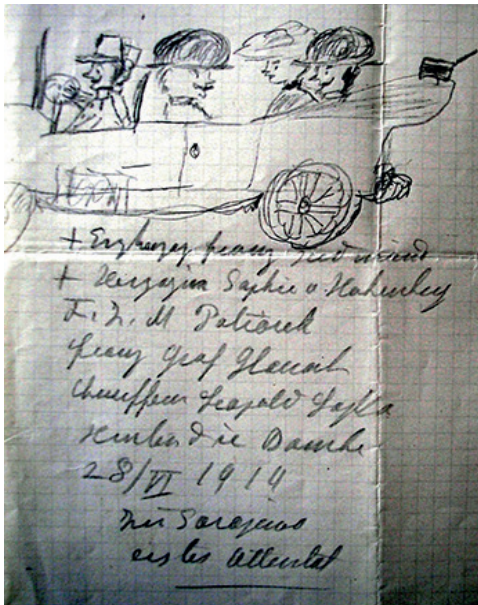 + Erzherzog Franz Ferdinand
+ Herzogin Sophie v Hohenberg
F. Z. M Potiorek
Franz Graf Harrach
Chauffeur Leopold Lojka
die Bombe
28/VI 1914
Sarajevo
erstes Attentat